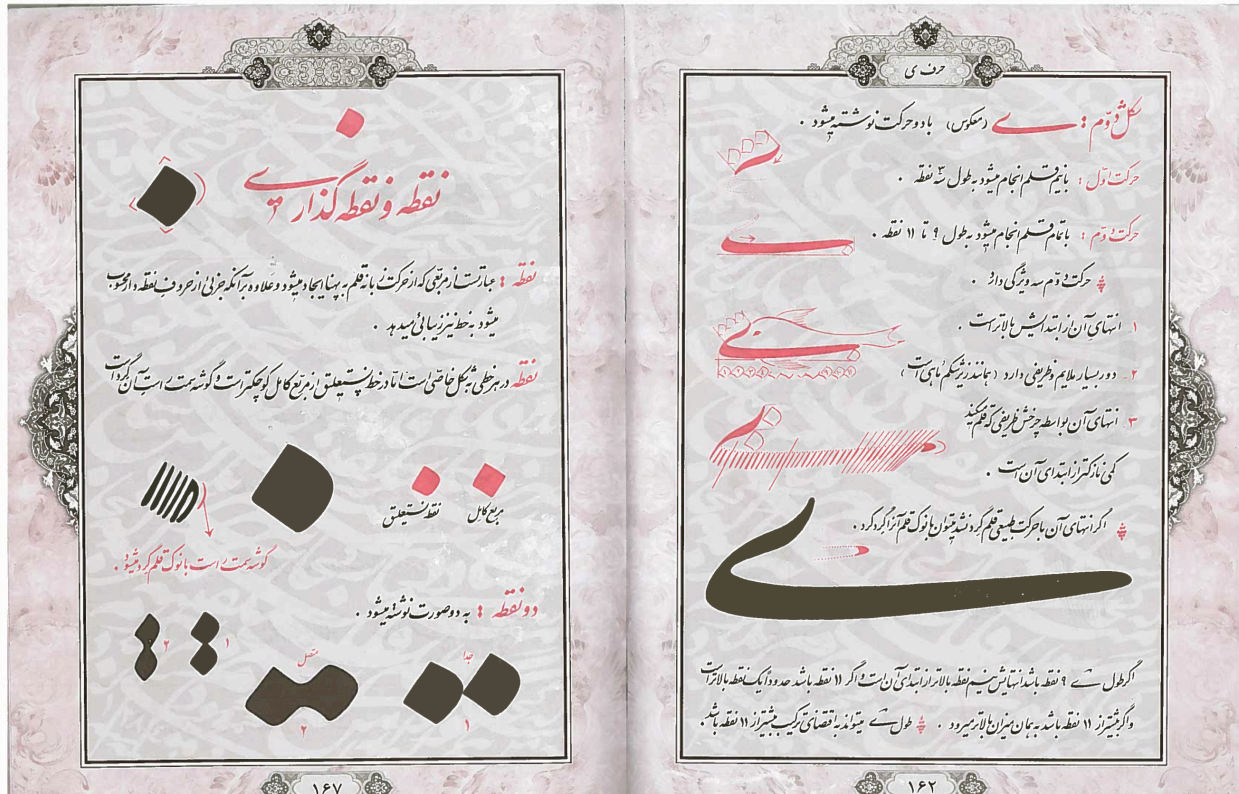 حرف ی
شکل دوم : ے (معکوس) با دو حرکت نوشته میشود .
حرکت اول : با نیم قلم انجام میشود به طول ۳ نقطه .
حرکت دوم : با تمام قلم انجام میشود به طول ۹ تا ۱۱ نقطه .
حرکت دوم سه ویژگی دارد .
۱ انتهای آن از ابتدایش بالاتر است .
۲ـ دور بسیار ملایم و ظریفی دارد (همانند زیر شکم ماهی است)
۳ انتهای آن بواسطه چرخش ظریفی که قلم میکند
کمی نازکتر از ابتدای آن است .
اگر انتهای آن با حرکت طبیعی قلم گرد نشد میتوان با نوک قلم آنرا گرد کرد .
ے
اگر طول ے ۹ نقطه باشد انتهایش نیم نقطه بالاتر از ابتدای آن است و اگر ۱۱ نقطه باشد حدود ایک نقطه بالاتر است
و اگر بیشتر از ۱۱ نقطه باشد به همان میزان بالاتر میرود . طول ے میتواند به اقتضای ترکیب بیشتر از ۱۱ نقطه باشد .
۱۶۲
نقطه و نقطه گذاری
نقطه : عبارتست از مربعی که از حرکت زبانه قلم به پهنا ایجاد میشود و علاوه بر آنکه جزئی از حروف نقطه دار محسوب
میشود به خط نیز زیبائی میدهد .
نقطه در هر خطی به شکل خاصی است اما در خط نستعلیق از مربع کامل کوچکتر است و گوشه سمت راست آن کمی گرد است
مربع کامل
نقطه نستعلیق
گوشه سمت راست با نوک قلم گرد میشود .
دو نقطه : به دو صورت نوشته میشود .
۱
۲
جدا
متصل
۱
۲
۱۶۷